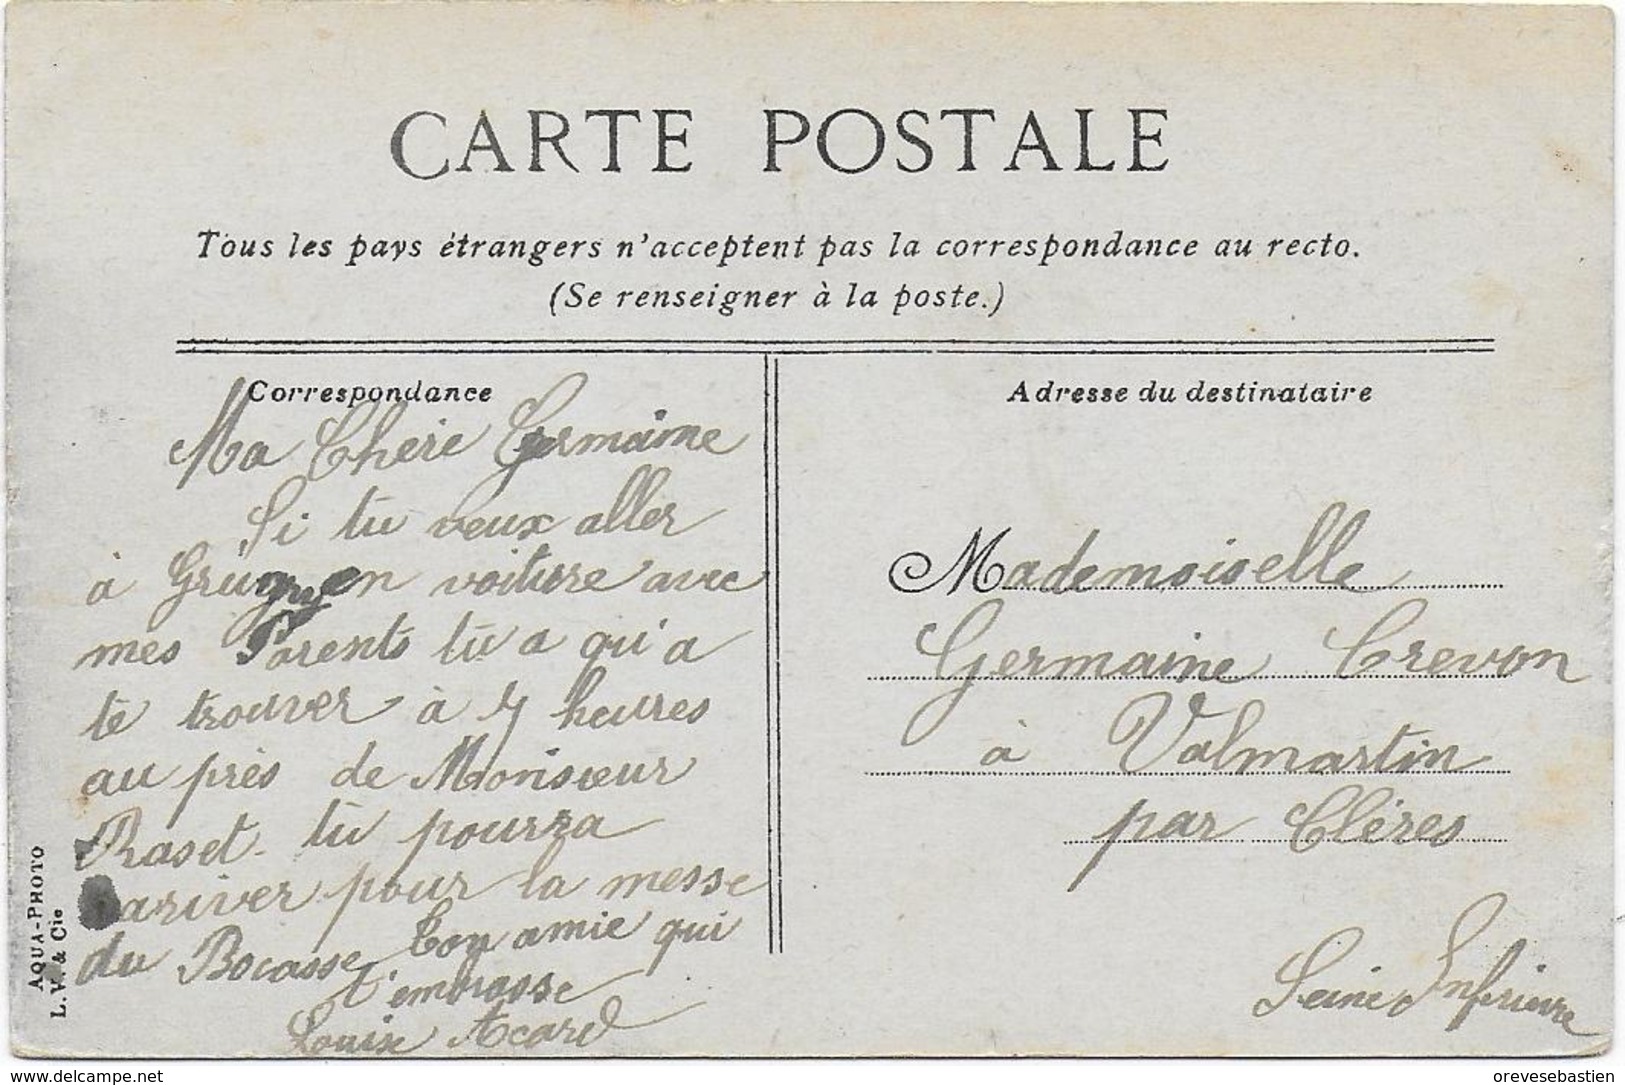 CARTE POSTALE
Tous les pays étrangers n'acceptent pas la correspondance au recto.
(Se renseigner à la poste.)
Correspondance
Ma Cherie Germaine
Si tu veux aller
à en voiture avec
mes Parents tu a qu'a
te trouver à 7 heures
au près de Monsieur
Raset tu pourra
ariver pour la messe
du Bocasse Ton amie qui
t'embrasse
Louise Acard
Adresse du destinataire
Mademoiselle
Germaine Crevon
à Valmartin
par Clères
Seine Infrieure
AQUA-PHOTO
L.V. & Cie
delcampe.net
orevesebastien